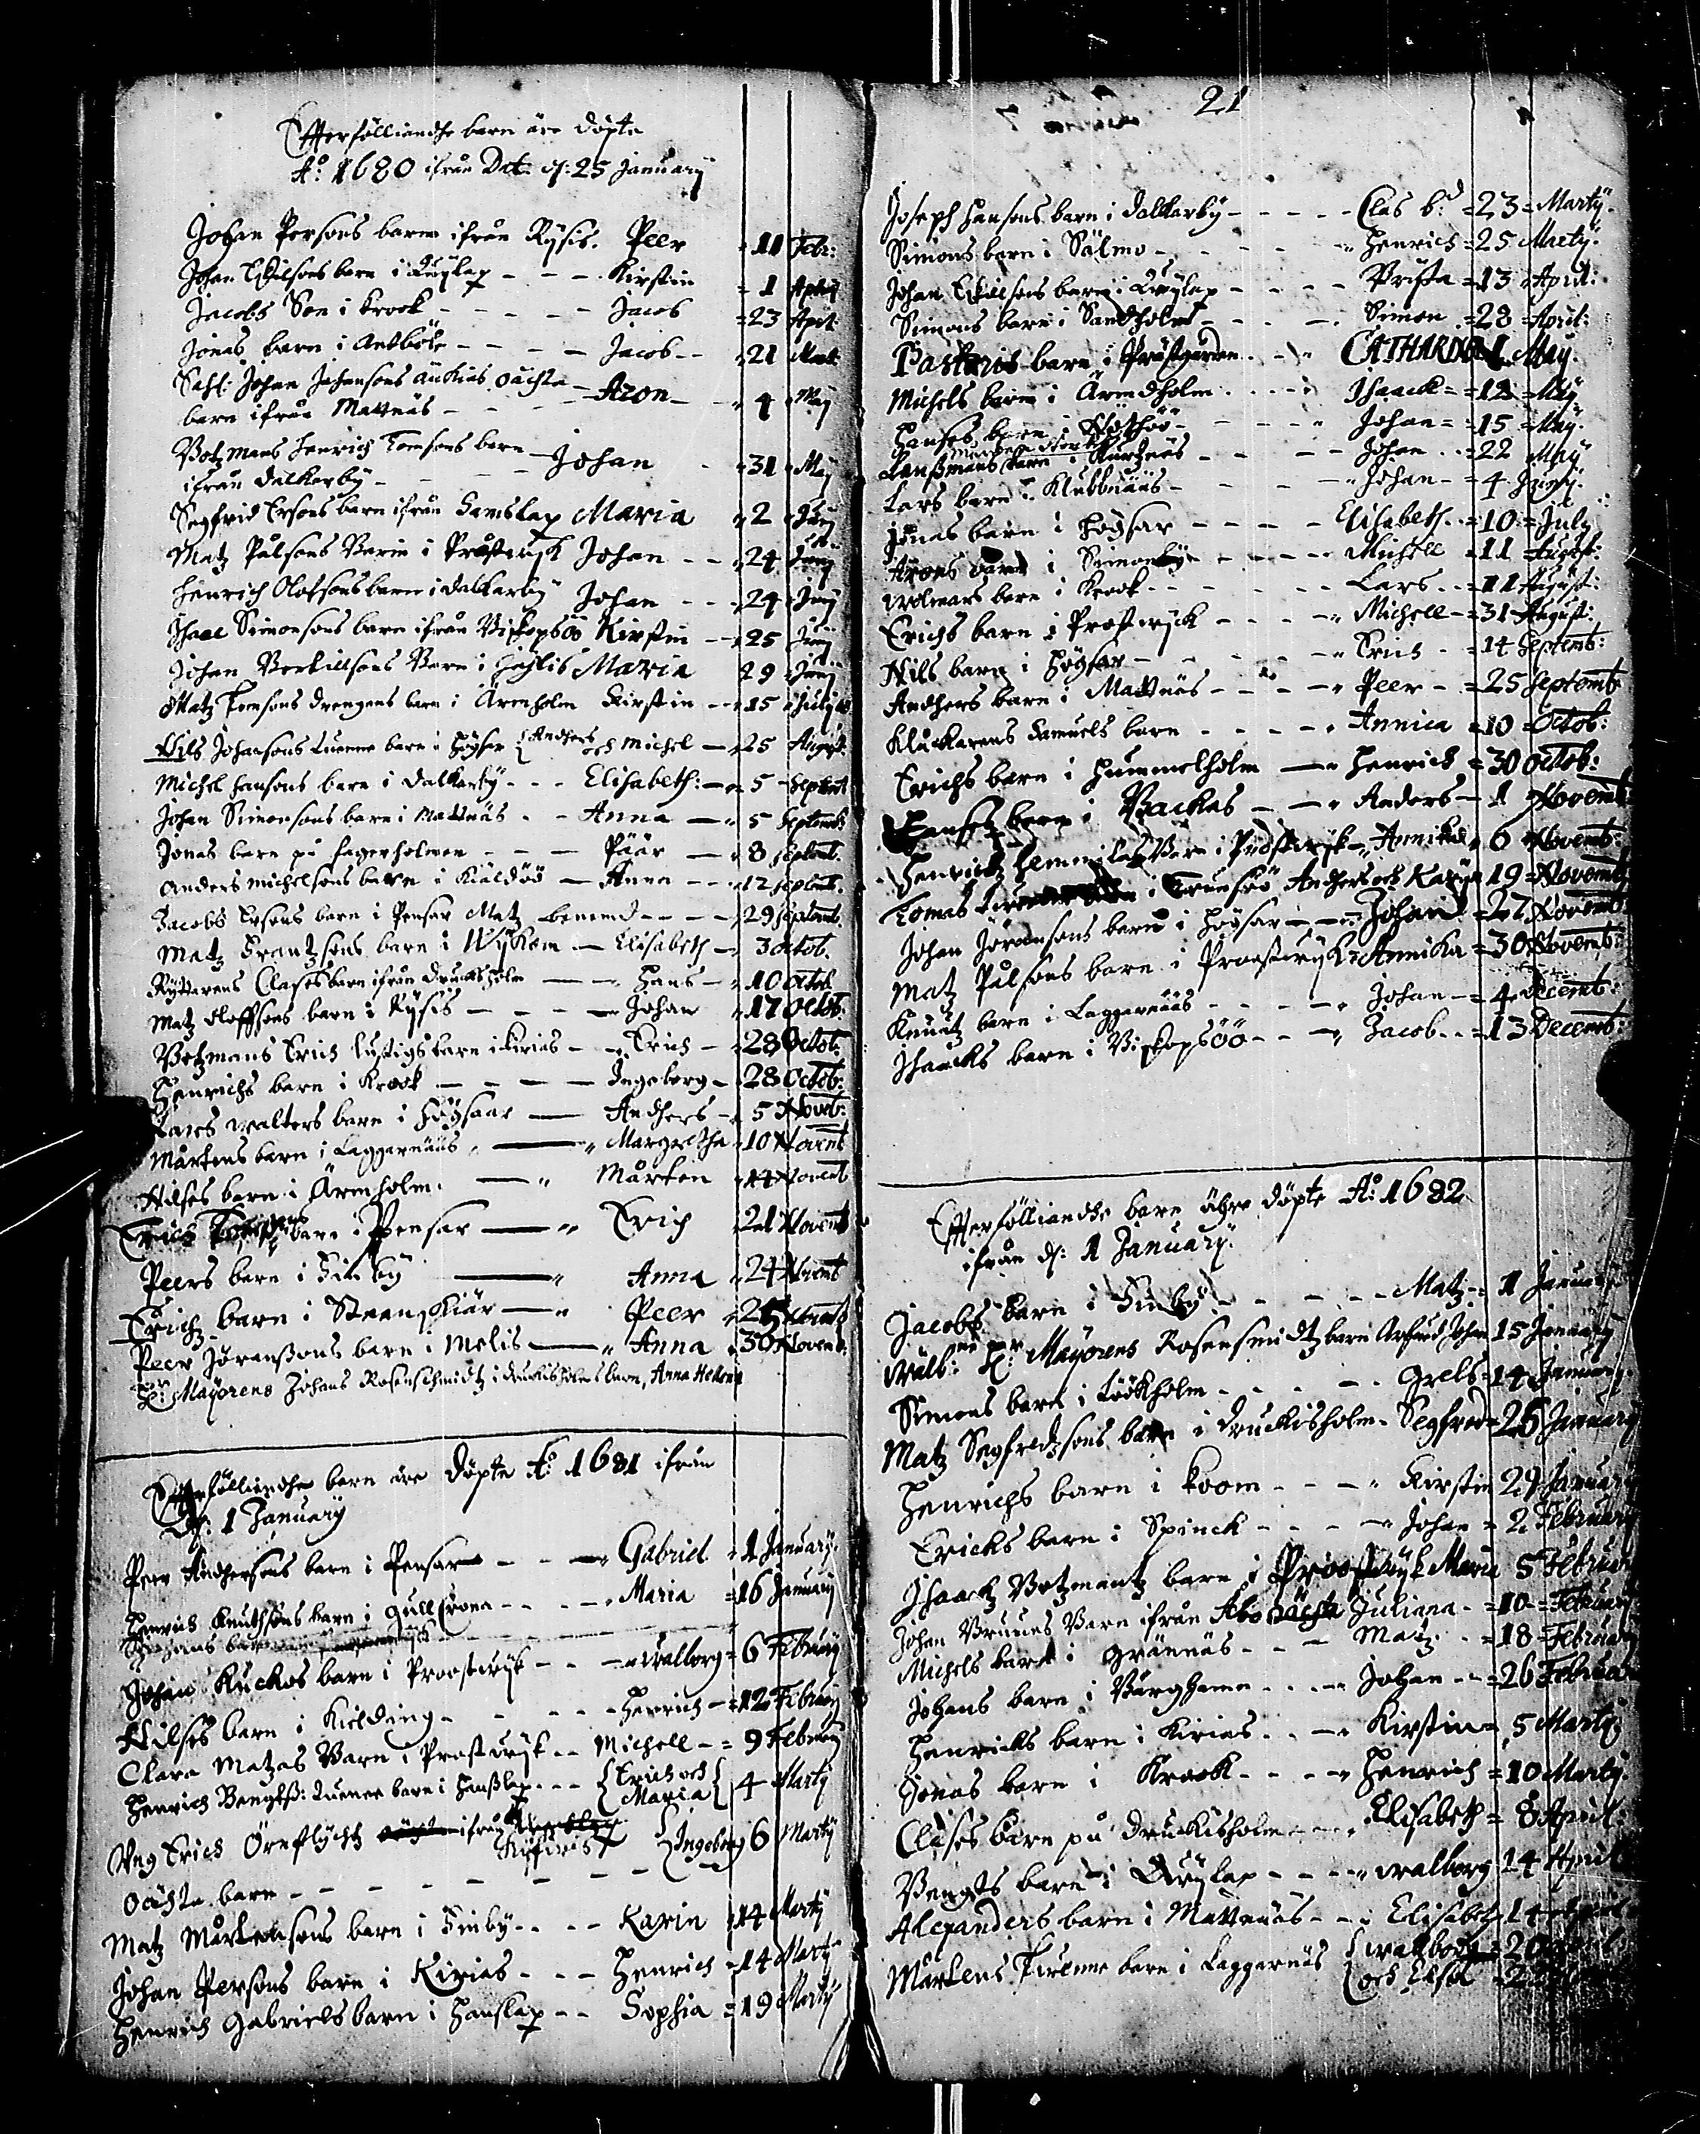 Effterföllliandhe barn äre döpte
A:o 1680 ifrån Dat. d: 25 January
Johan Persons barn ifrån Rysis. Peer 11 Febr:
Johan Eskilsons barn i Lax - - - Kirstin = 1 Aprilis
Jacobs Son i krook - - - - - Jacob = 23 April
Jonas barn i Antböle - - - - Jacob - - 21 Maii
Sahl: Johan Johansons Änkias oächta
barn ifrån Mattnäs - - - - Aron - 4 Maij
Botzmans Henrich Tomsons barn
ifrån Dalkarby - - Johan 31 Maij
Segfrid Ersons barn ifrån Hamslax Maria 2 Junij
Matz Pålsons Barn i Prästwijk Johan - - 24 Junij
Henrich Olofsons barn i dalkarby Johan - - 24 Junij
Isaac Simonsons barn ifrån Biskopsöö Kirstin - - 25 Junij
Johan Bertillsons Barn i Maria 29 Junij
Matz Tomsons drengens barn i Ärnholm Kirstin - - 15 Julij
Nils Johansons barn i Högsar { Andhers och Michel - 25 August:
Michel Hansons barn i Dalkarby - - - Elisabeth: - 5 Septemb
Johan Simonsons barn i Mattnäs - - Anna - 5 Septemb:
Jonas barn på fagerholmen - - - Päär - 8 Septemb:
Anders Michelsons barn i Kiäldöö - Anna - - 12 Septemb:
Jacobs Ersons barn i Pensar Matz benemd - - - 29 Septemb:
Matz Frantzsons barn i Wijkom - Elisabeth - 3 Octob.
Ryttarens Clases barn ifrån Druckisholm - - Hans - 10 Octob
Matz Oloffsons barn i Rysis - - - - Johan 17 Octob:
Botzmans Erich Lustigs barn i kirias - - Erich - 28 Octob:
Henrichs barn i Krook - - - - Ingeborg - 28 Octob:
Lars Walters barn i Högsaar - Andhers - 5 Novēb:
Mårtens barn i Laggarnääs - Margretha 10 Novemb
Nilses barn i Ärnholm. - Mårten 14 Novemb
Erich barn i Pensar - Erich 21 Novemb
Peers barn i Finby - Anna 24 Novemb
Erichz barn i Straangkiär - Peer 25 Novemb
Peer Jöranßons barn i Melis - Anna 30 Novemb:
H: Mayorens Johans Rosenschmidtz i druckisholms barn, Anna Helena
Effterfölliandhe barn äre döpte A:o 1681 ifrån
d: 1 January
Peer Andhersons barn i Pensar - - - Gabriel 1 January.
Henrich Knuthsons barn i Gullkrona - - - - Maria = 16 January
Johan Kuckos barn i Proostwijk - - Walborg = 6 February
Nilses barn i Kielding - - - - - Henrich - = 12 February
Clara Matzas Barn i Prostwijk - - Michell - = 9 February
Henrich Bengtß: barn i Hanßlax - - - { Erich och Maria } 4 Marty
Wng Erich Örneflychtz ifrån { Ingeborg 6 Marty
Oächta barn - - - - - - - -
Matz Mårtensons barn i Finby - - - Karin 14 Marty
Johan Persons barn i Kirias - - - Henrich 14 Marty
Henrich Gabriels barn i Hanslax - - Sophia = 19 Marty
21
Joseph Hansons barn i Dalkarby - - - - Clas b:d = 23 = Marty.
Simons barn i Sälmo - - - - Henrich = 25 Marty.
Johan Eskillsons barn i Lax - - - - Brita = 13 April:
Simons barn i Sandholm - - - - Simon = 28 = April:
Pastoris barn i Prästgården - - - CATHARINA 1 May.
Michels barn i Ärnndholm - - - - Isaack = = 12 = May
Hanses barn i - - - - Johan = = 15 = May.
Lansmans barn i Kurknäs - - - - Johan - - = 22 May
Lars barn i Klubbnääs - - - - Johan - = 4 Juny.
Jonas barn i Högsar - - - - Elisabeth. = 10 = July
Arons barn i Simonby - - - - - Michell = 11 = August:
Wolmars barn i Krook - - - - - Lars - = 11 August:
Erichs barn i Prostwyck - - - - Michell - = 31 August:
Nils barn i Högsar - - - - Erich - = 14 Septemb:
Andhers barn i Mattnäs - - - - Peer - = 25 Septemb
Kluckarens Samuels barn - - - - Annica = 10 = Octob:
Erichs barn i Hummelholm - Henrich = 30 Octob:
Hanses barn i Backas - - Anders - 1 Novemb
Henrichz Barn i Prostwijk - Annika = 6 Novemb:
Tomas i Trunsöö Andhers och Karin 19 = Novemb
Johan Jöransons barn i Högsar - - Johan = 27 Novemb
Matz Pålsons barn i Proostwyk = Annika = 30 Novemb:
Knuutz barn i Laggarnääs - - - - Johan - = 4 Decemb:
Isaacks barn i Biskopsöö - - - Jacob - - = 13 Decemb:
Effterfölliandhe barn ähre döpte A:o 1682
ifrån d: 1 January.
Jacobs barn i Finby - - - - - Matz = 1 January
Wälb: H: Mayorens Rosensmidtz barn Arfuid Johan 15 January
Simons barn i Löökholm - - - - - Grels = 14 January.
Matz Segfredsons barn i Druckisholm - Segfred = 25 January
Henrichs barn i Room - - - Kirstin 29 January
Ericks barn i Spinck - - - - Johan = 2. February
Isaackz Botzmantz barn i Proostwijk Maria 5 February
Johan Bruuns Barn ifrån Åbo oächta Juliana - = 10 = February
Michels barn i Grännäs - - - - Matz - = 18 = February
Johans barn i Bärghamn - - - - Johan - - = 26 February
Henricks barn i Kirias - - - Kirstin = 5 Marty.
Jonas barn i Krook - - - - Henrich = 10 Marty.
Clases barn på Druckisholm - - - Elisabeth = 8 April:
Bengts barn i Lax - - - - Walborg 14 April
Alexanders barn i Mattnääs - - Elisabeth 14 April
Mårtens barn i Laggarnäs { Walborg = 20
{ och